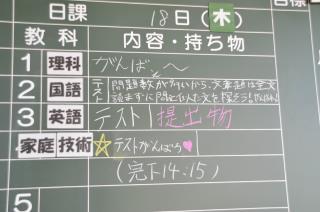 日課
18日(木)
教科
内容・持ち物
1 理科 がんばぇ〜
2 国語 テスト 問題数が多いから、文章題は全文
読まずに問に似た文を探そう!
3 英語 テスト 提出物
家庭 技術 ☆テストがんばろ♥
(完下14:15)
5